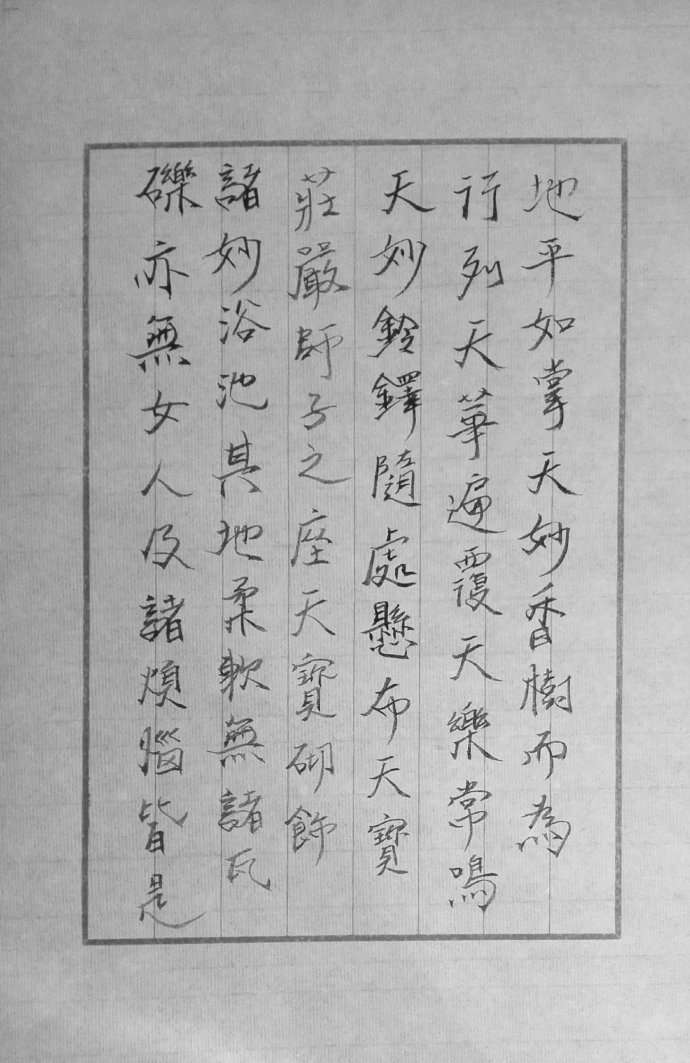 地平如掌天妙香樹而為
行列天華遍覆天樂常鳴
天妙鈴鐸隨處懸布天寶
莊嚴師子之座天寶砌飾
諸妙浴池其地柔軟無諸瓦
礫亦無女人及諸煩惱皆是